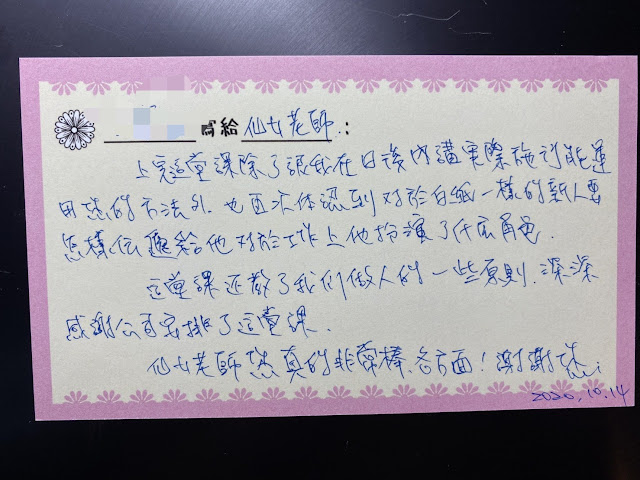 寫給 仙女老師 :
上完這堂課除了讓我在日後內講實際施行能運
用您的方法外、也再次体認到對於白紙一樣的新人要
怎樣伝遞給他對於工作上他扮演了什麼角色.
這堂課还教了我们做人的一些原則.深深
感謝公司安排了這堂課.
仙女老師您真的非常棒、各方面！謝謝您
2020.10.14